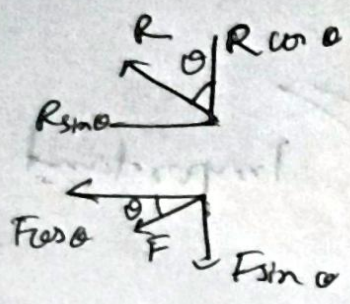 R
θ R cos θ
R sin θ
θ
F cos θ F
F sin θ